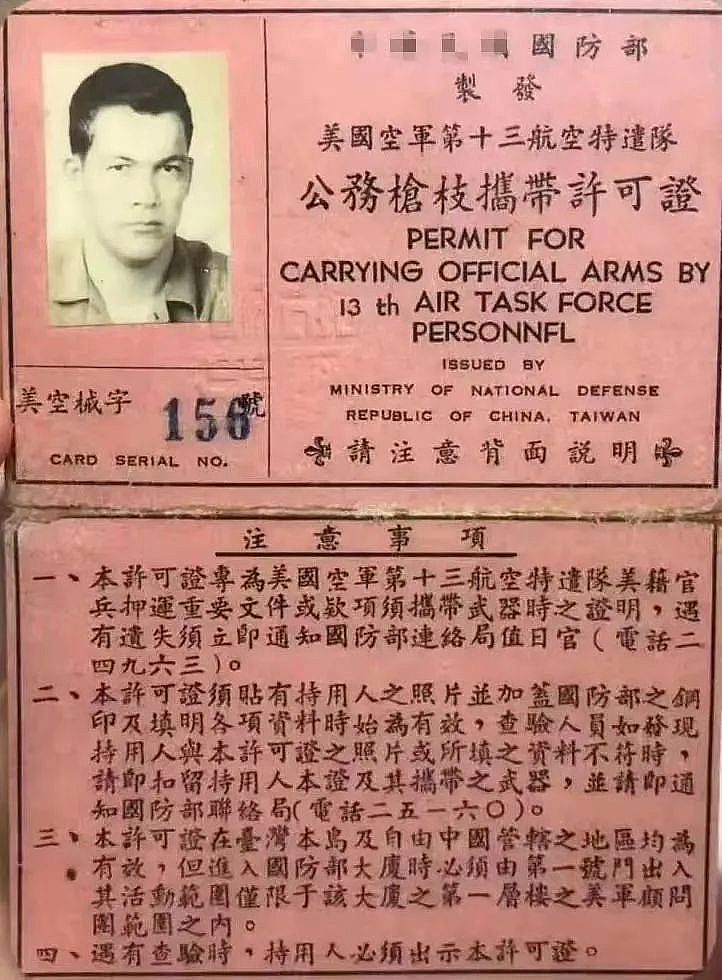 國防部
製發
美國空軍第十三航空特遣隊
公務槍枝攜帶許可證
PERMIT FOR
CARRYING OFFICIAL ARMS BY
13 th AIR TASK FORCE
PERSONNFL
ISSUED BY
MINISTRY OF NATIONAL DEFENSE
REPUBLIC OF CHINA. TAIWAN
請注意背面說明
美空械字 156 號
CARD SERIAL NO.
注意事項
一、本許可證專為美國空軍第十三航空特遣隊美籍官
兵押運重要文件或欵項須攜帶武器時之證明，遇
有遺失須立即通知國防部連絡局值日官（電話二
四九六三）。
二、本許可證須貼有持用人之照片並加蓋國防部之鋼
印及填明各項資料時始為有效，查驗人員如發現
持用人與本許可證之照片或所填之資料不符時，
請即扣留持用人本證及其攜帶之武器，並請即通
知國防部聯絡局(電話二五一六〇)。
三、本許可證在臺灣本島及自由中國管轄之地區均為
有效，但進入國防部大廈時必須由第一號門出入
其活動範圍僅限于該大廈之第一層樓之美軍顧問
團範圍之內。
四、遇有查驗時，持用人必須出示本許可證。